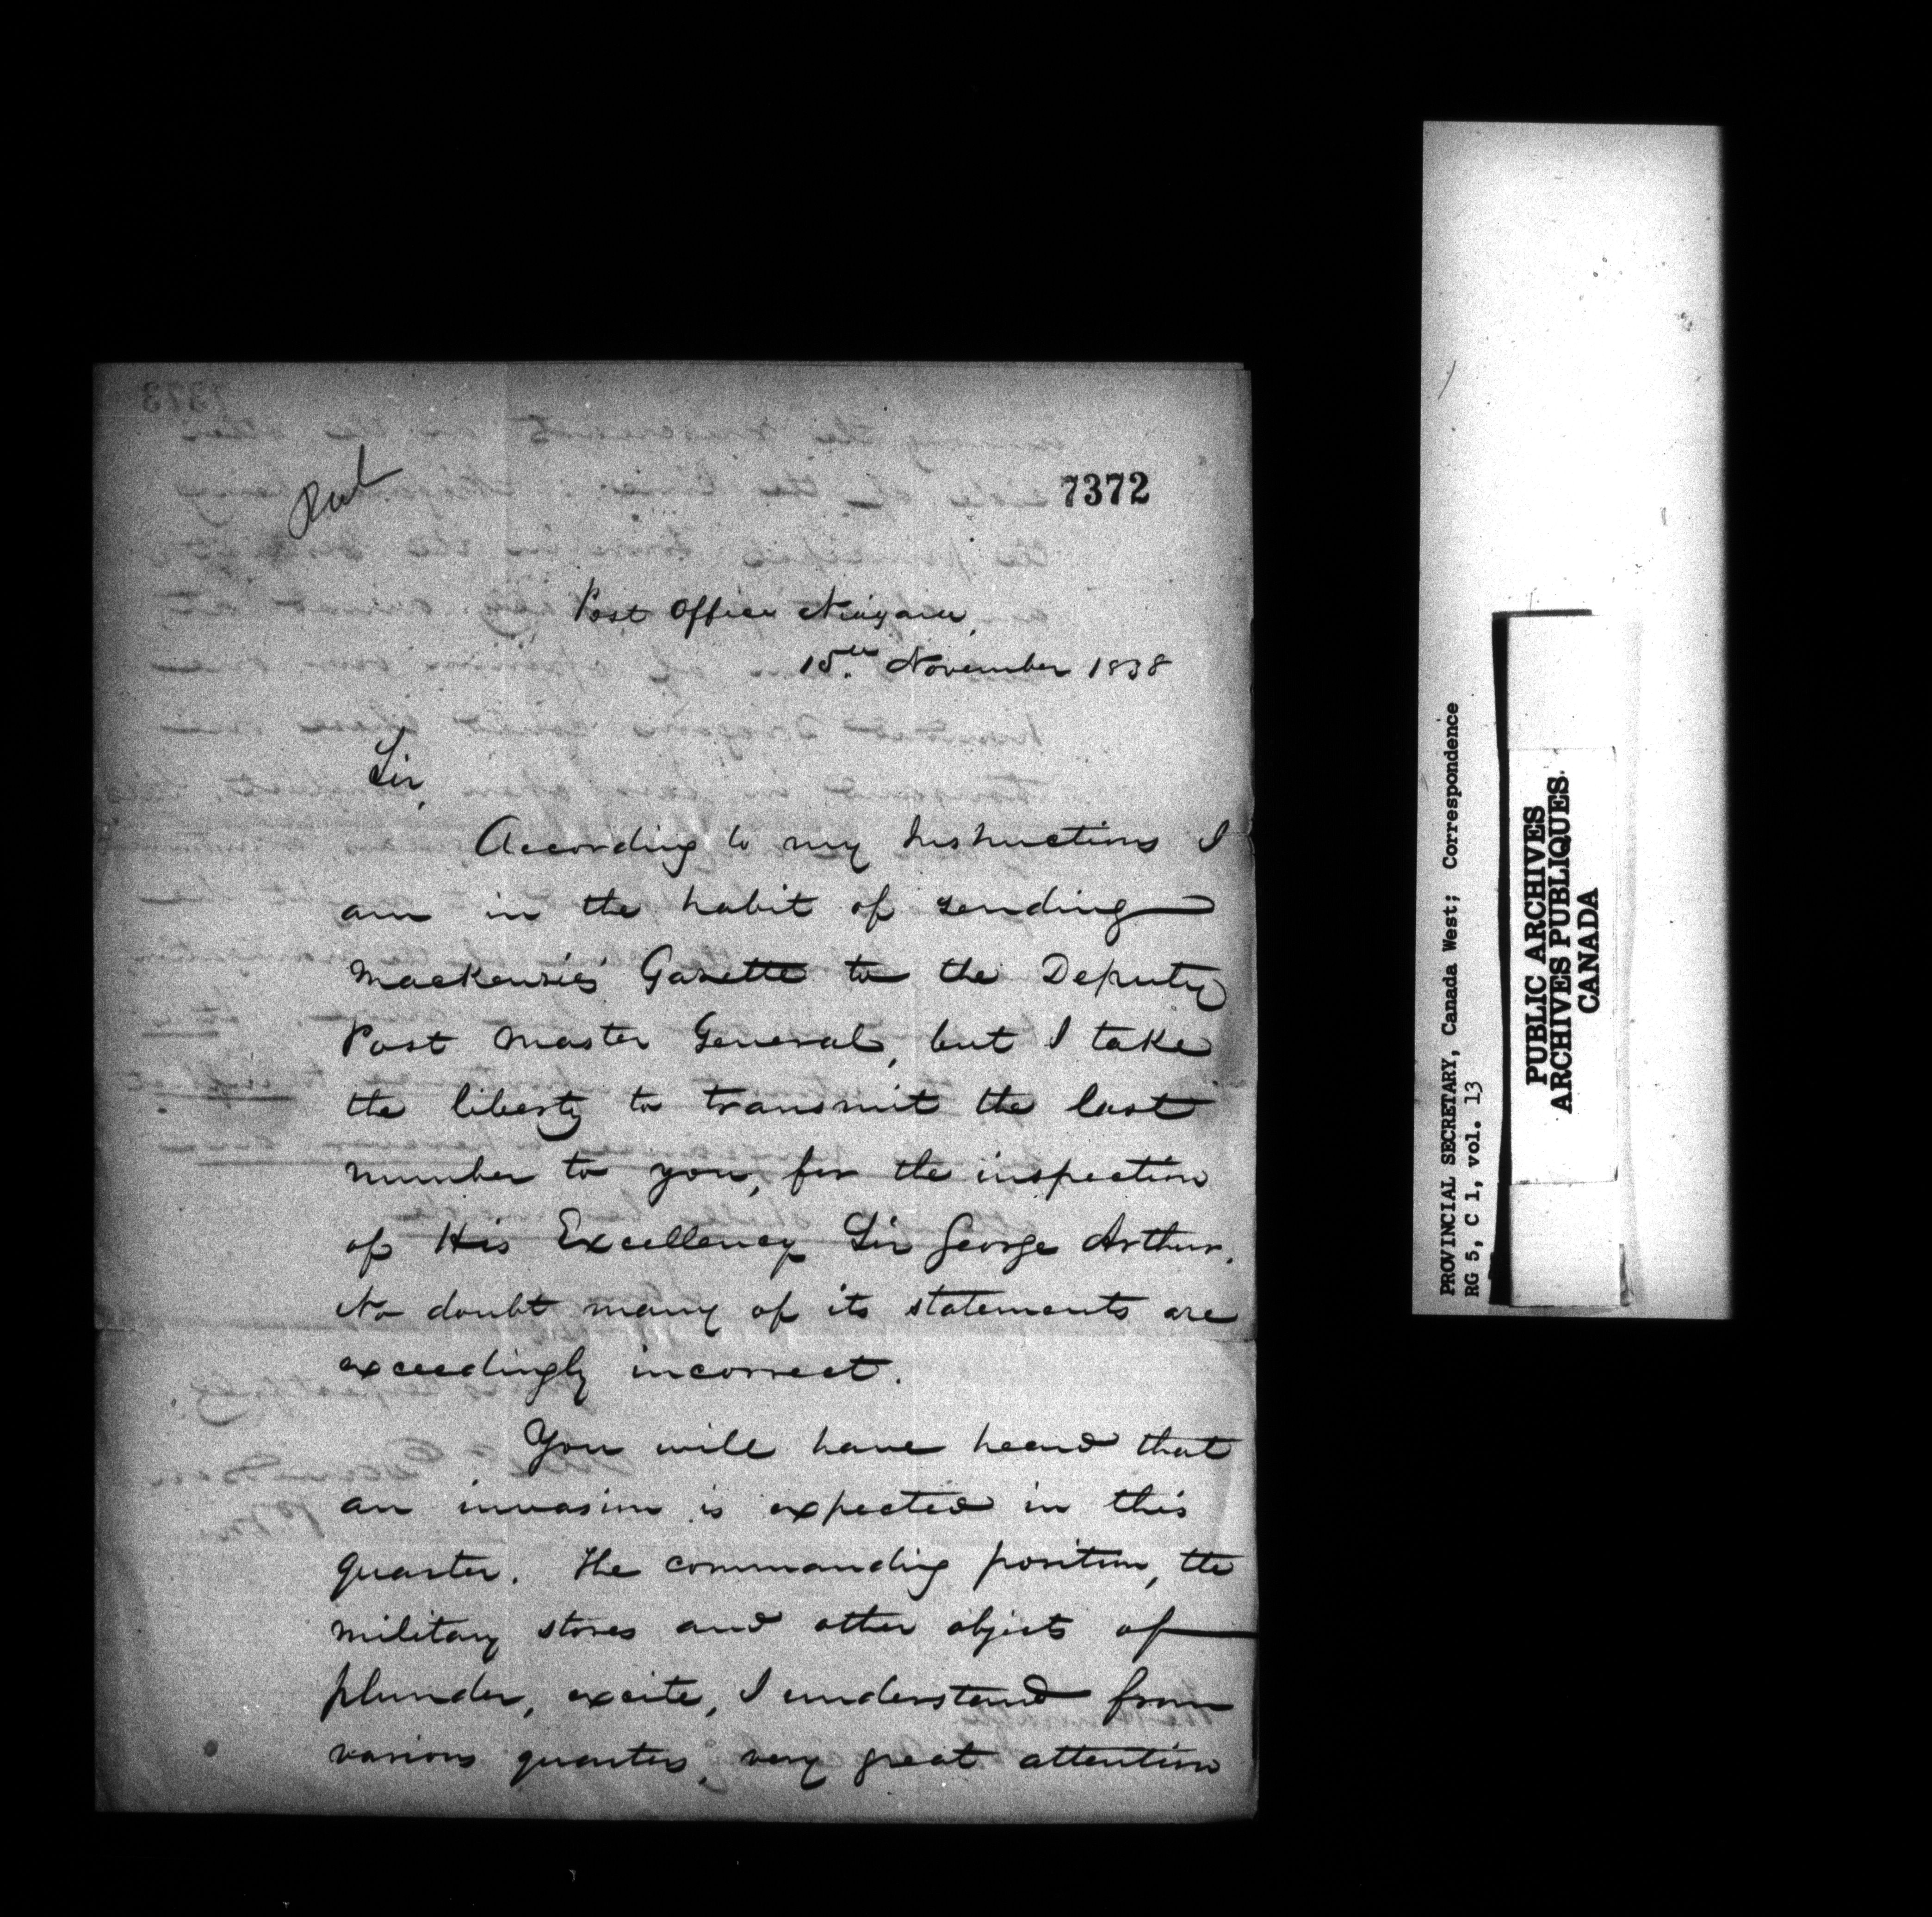 7372
Post Office Niagara,
15th. November 1838
Sir,
According to my Instructions I
am in the habit of sending
Mackenzie's Gazette to the Deputy
Post Master General, but I take
the liberty to transmit the last
number to you, for the inspection
of His Excellency Sir George Arthur.
No doubt many of its statements are
exceedingly incorrect.
You will have heard that
an invasion is expected in this
quarter. The commanding position, the
military stores and other objects of
plunder, excite, I understand from
various quarters, very great attention
PROVINCIAL SECRETARY, Canada West; Correspondence
RG 5, C 1, vol. 13
PUBLIC ARCHIVES
ARCHIVES PUBLIQUES
CANADA